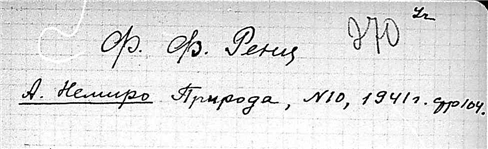 Ф. Ф. Ренц 270
А. Немиро Природа, N10, 1941г. стр104.